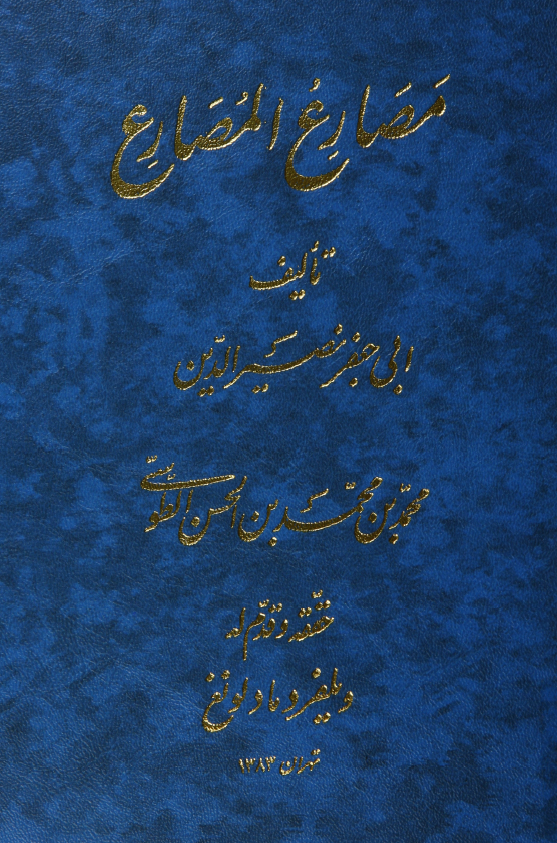 مَصَارِعُ المُصَارِعِ
تأليف
ابی جعفر نصیر الدّین
محمّد بن محمّد بن الحسن الطّوسیّ
حقّقه وقدّم له
ویلفرد مادلونغ
تهران ۱۳۸۳